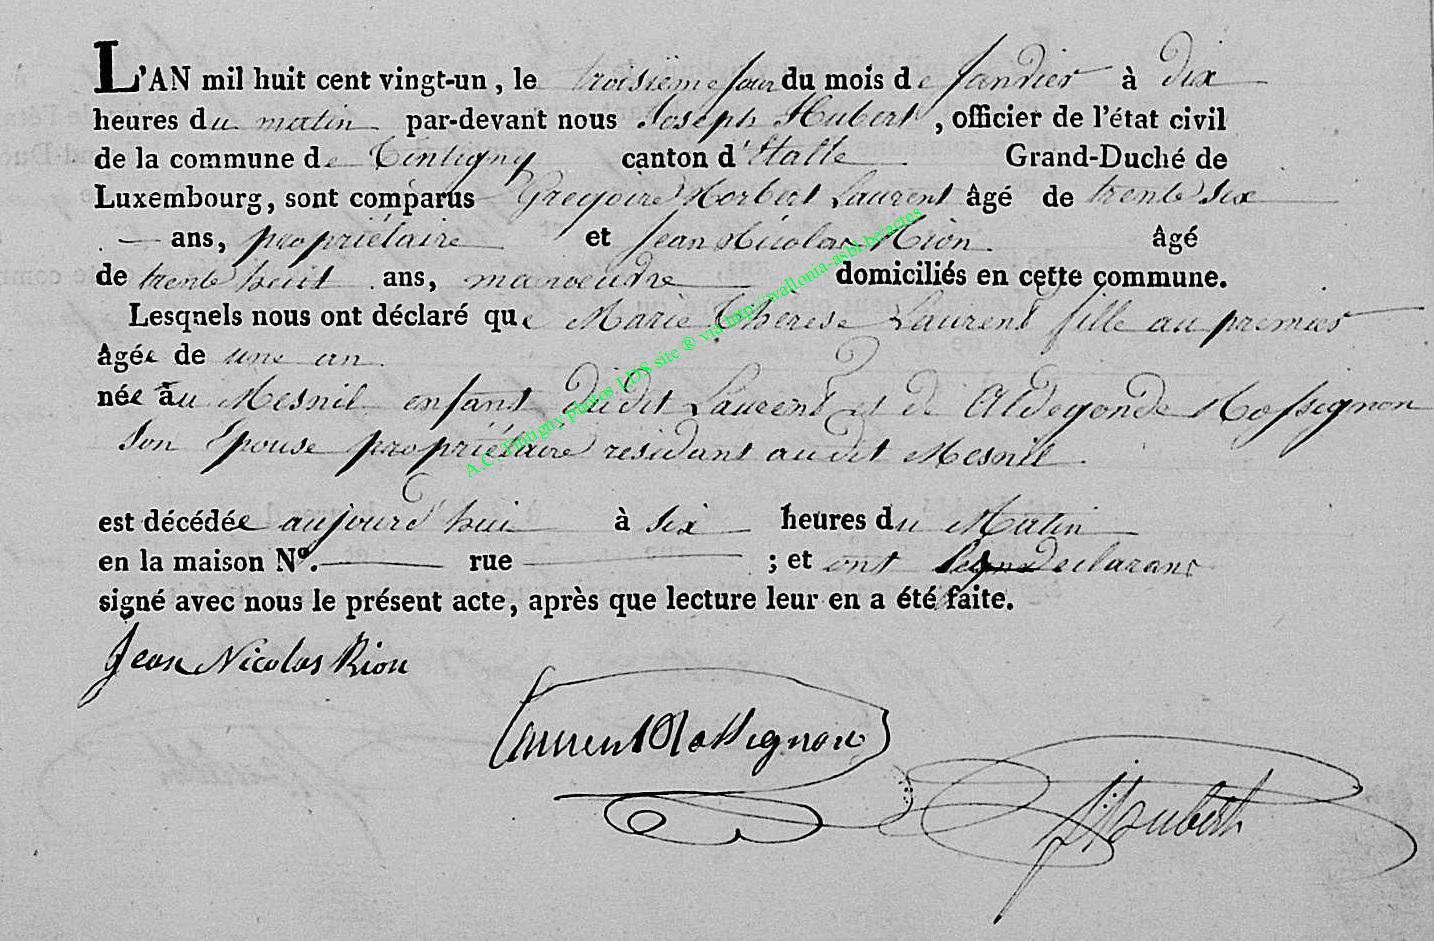 L'AN mil huit cent vingt-un, le troisieme jour du mois de Janvier à dix
heures du matin par-devant nous Joseph Hubert, officier de l'état civil
de la commune de Tintigny canton d'Etalle Grand-Duché de
Luxembourg, sont comparus Gregoire Norbert Laurent âgé de trente six
ans, propriétaire et Jean Nicolas Rion âgé
de trente huit ans, manoeuvre domiciliés en cette commune.
Lesquels nous ont déclaré que Marie Thérèse Laurent fille au premier
âgée de une an
née au Mesnil enfant dudit Laurent et de Aldegonde Rossignon
son Epouse propriétaire residant audit Mesnil
est décédée aujourd'hui à six heures du Matin
en la maison N°. rue ; et ont les declarans
signé avec nous le présent acte, après que lecture leur en a été faite.
Jean Nicolas Rion
Laurent Rossignon
J Hubert
A.C. Tintigny photos LDS site ® via http://wallonia-asbl.be/actes